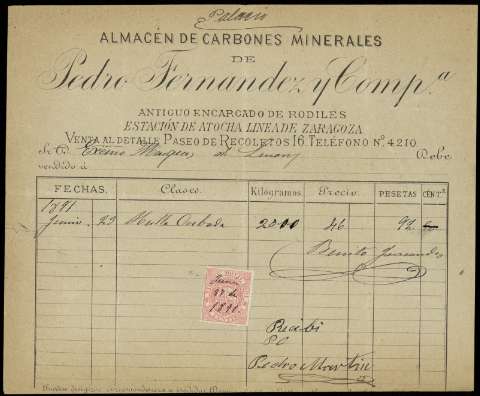 Palacio
ALMACÉN DE CARBONES MINERALES
DE
Pedro Fernandez y Comp.ª
ANTIGUO ENCARGADO DE RODILES
ESTACIÓN DE ATOCHA LINEA DE ZARAGOZA
VENTA AL DETALLE PASEO DE RECOLETOS 16. TELÉFONO Nº 4210.
Excmo Marques de Linares Debe
vendido á
FECHAS. Clases. Kilógramos. Precio. PESETAS CÉNT.s
1891
Junio 23 Hulla Cribada 2000 46 92
Benito Fernandez
Junio
1891
Recibi
P.O
Pedro Martin